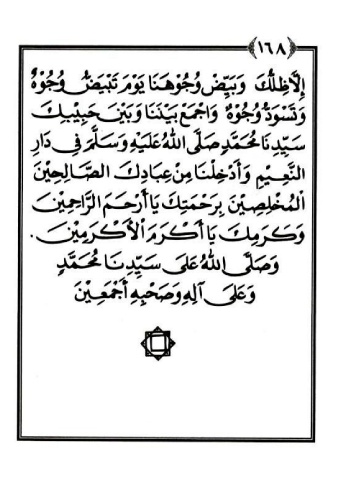 ﴿١٦٨﴾
إِلَّا ظِلُّكَ وَبَيِّضْ وُجُوْهَنَا يَوْمَ تَبْيَضُّ وُجُوْهٌ
وَتَسْوَدُّ وُجُوْهٌ وَاجْمَعْ بَيْنَنَا وَبَيْنَ حَبِيْبِكَ
سَيِّدِنَا مُحَمَّدٍ صَلَّى اللهُ عَلَيْهِ وَسَلَّمَ فِي دَارِ
النَّعِيْمِ وَأَدْخِلْنَا مِنْ عِبَادِكَ الصَّالِحِيْنَ
الْمُخْلِصِيْنَ بِرَحْمَتِكَ يَا أَرْحَمَ الرَّاحِمِيْنَ
وَكَرَمِكَ يَا أَكْرَمَ الْأَكْرَمِيْنَ.
وَصَلَّى اللهُ عَلَى سَيِّدِنَا مُحَمَّدٍ
وَعَلَى آلِهِ وَصَحْبِهِ أَجْمَعِيْنَ